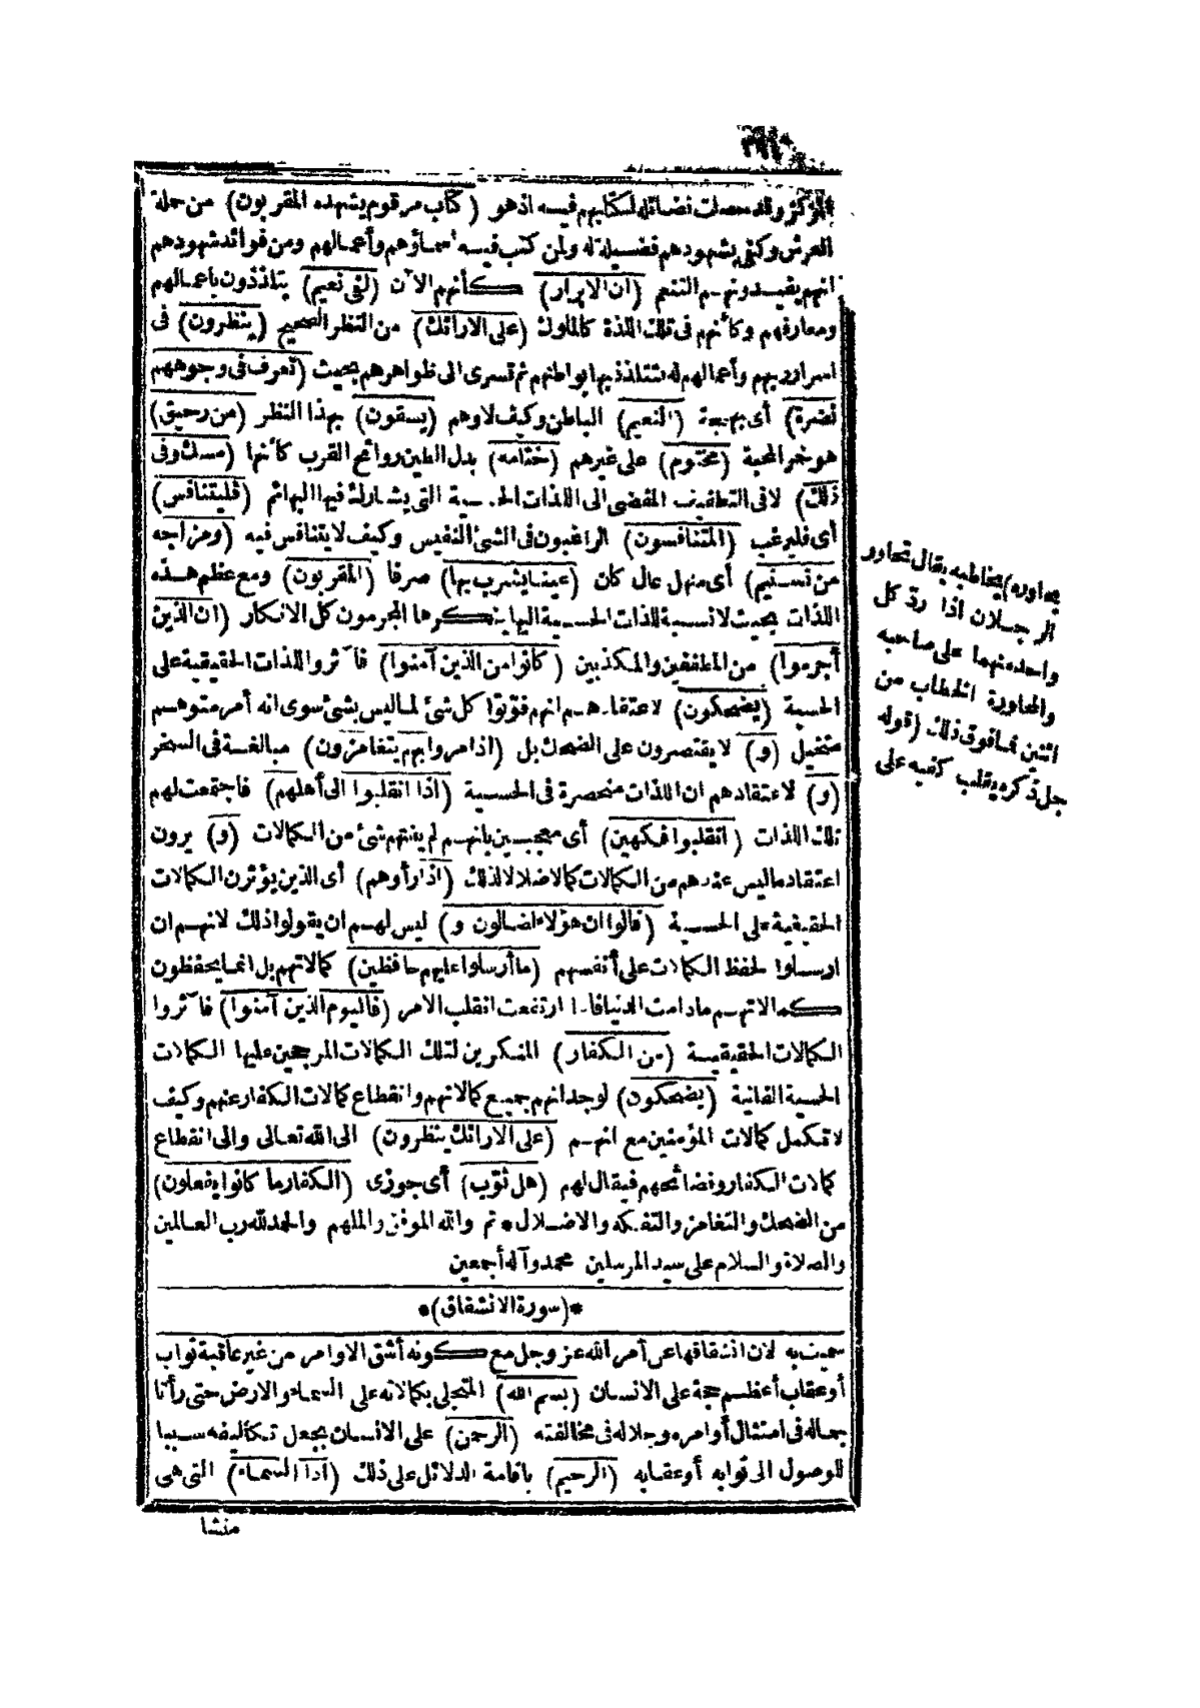 المركز وقد حصلت فضائله لكتابهم فيه اذ هو (كتاب مرقوم يشهده المقربون) من حملة
العرش وكفى بشهودهم فضيلة له ولمن كتب فيه أسماؤهم وأعمالهم ومن فوائد شهودهم
انهم يفيدونهم التنعم (ان الابرار) كأنهم الآن (لفى نعيم) يتلذذون باعمالهم
ومعارفهم وكأنهم فى تلك اللذة كالملوك (على الارائك) من النظر الصحيح (ينظرون) فى
اسرار ربهم وأعمالهم له فتتلذذ بها بواطنهم ثم تسرى الى ظواهرهم بحيث (تعرف فى وجوههم
نضرة) أى بهجة (النعيم) الباطن وكيف لا وهم (يسقون) بهذا النظر (من رحيق)
هو خمر المحبة (مختوم) على غيرهم (ختامه) بدل الطين روائح القرب كأنها (مسك وفى
ذلك) لا فى التطفيف المفضى الى اللذات الحسية التى يشارك فيها البهائم (فليتنافس)
أى فليرغب (المتنافسون) الراغبون فى الشئ النفيس وكيف لا يتنافس فيه (ومزاجه
من تسنيم) أى منهل عال كان (عينا يشرب بها) صرفا (المقربون) ومع عظم هذه
اللذات بحيث لا نسبة للذات الحسية اليها ينكرها المجرمون كل الانكار (ان الذين
أجرموا) من المطففين والمكذبين (كانوا من الذين آمنوا) فآثروا اللذات الحقيقية على
الحسية (يضحكون) لاعتقادهم انهم فوّتوا كل شئ لما ليس بشئ سوى انه أمر متوهم
متخيل (و) لا يقتصرون على الضحك بل (اذا مروا بهم يتغامزون) مبالغة فى السخر
(و) لاعتقادهم ان اللذات منحصرة فى الحسية (اذا انقلبوا الى أهلهم) فاجتمعت لهم
تلك اللذات (انقلبوا فكهين) أى معجبين بانهم لم يفتهم شئ من الكمالات (و) يرون
اعتقاد ما ليس عندهم من الكمالات كمالا ضلالا لذلك (اذا رأوهم) أى الذين يؤثرن الكمالات
الحقيقية على الحسية (قالوا ان هؤلاء لضالون و) ليس لهم ان يقولوا ذلك لانهم ان
ارسلوا لحفظ الكمالات على أنفسهم (ما أرسلوا عليهم حافظين) كمالاتهم بل انما يحفظون
كمالاتهم ما دامت الدنيا فاذا ارتفعت انقلب الامر (فاليوم الذين آمنوا) فآثروا
الكمالات الحقيقية (من الكفار) المنكرين لتلك الكمالات المرجحين عليها الكمالات
الحسية الفانية (يضحكون) لوجدانهم جميع كمالاتهم وانقطاع كمالات الكفار عنهم وكيف
لا تكمل كمالات المؤمنين مع انهم (على الارائك ينظرون) الى الله تعالى والى انقطاع
كمالات الكفار وفضائحهم فيقال لهم (هل ثوّب) أى جوزى (الكفار ما كانوا يفعلون)
من الضحك والتغامز والتفكه والاضلال * تم والله الموفق والملهم والحمد لله رب العالمين
والصلاة والسلام على سيد المرسلين محمد وآله أجمعين
*(سورة الانشقاق)*
سميت به لان انشقاقها عن أمر الله عز وجل مع كونه أشق الاوامر من غير عاقبة ثواب
أو عقاب أعظم حجة على الانسان (بسم الله) المتجلى بكمالاته على السماء والارض حتى رأتا
جماله فى امتثال أوامره وجلاله فى مخالفته (الرحمن) على الانسان بجعل تكاليفه سببا
للوصول الى ثوابه أو عقابه (الرحيم) باقامة الدلائل على ذلك (اذا السماء) التى هى
منشا
يحاوره) يخاطبه يقال تحاور
الرجلان اذا ردّ كل
واحد منهما على صاحبه
والمحاورة الخطاب من
اثنين فما فوق ذلك (قوله
جل ذكره يقلب كفيه على